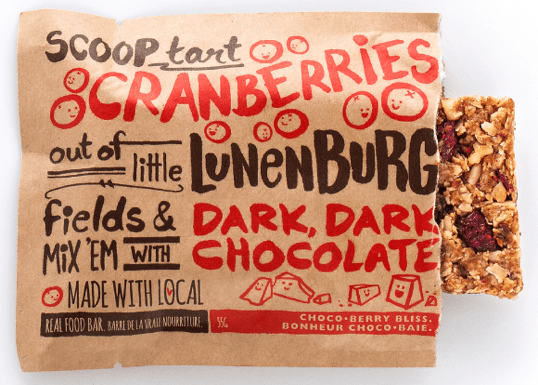 SCOOP tart
CRANBERRiES
out of little LUNENBURG
fields & DARK, DARK
MiX 'EM WITH CHOCOLATE
MADE WITH LOCAL
REAL FOOD BAR. BARRE DE LA VRAIE NOURRITURE. 55G CHOCO•BERRY BLISS.
BONHEUR CHOCO•BAIE.